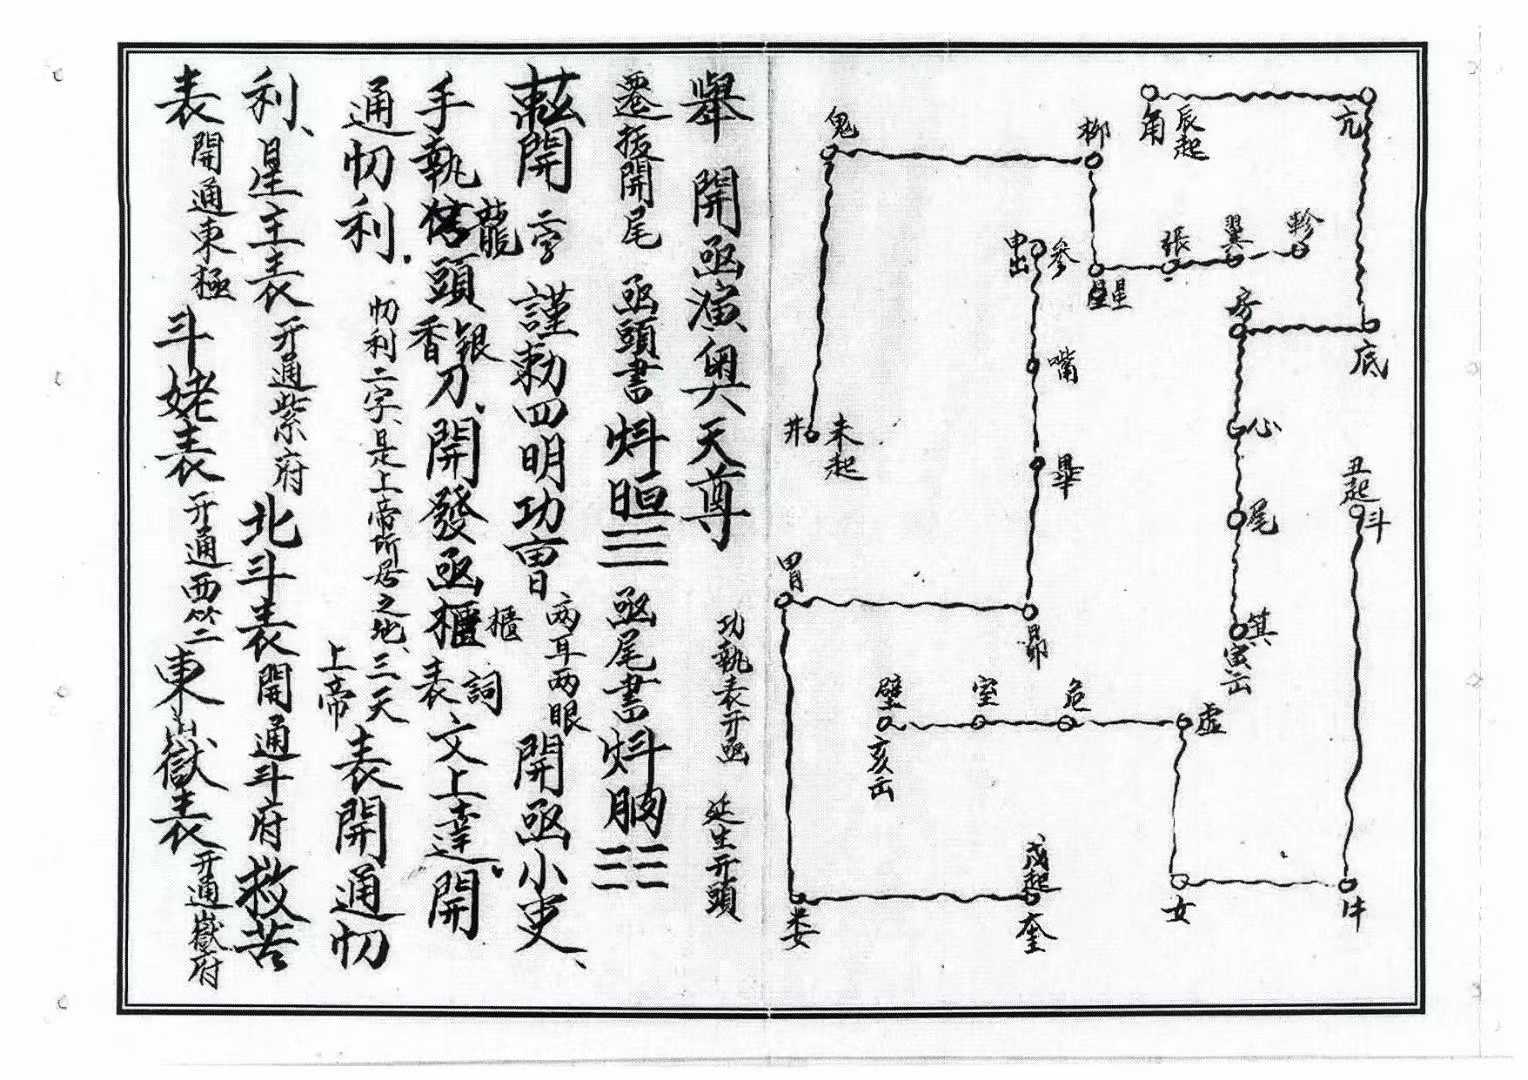 角
辰起
亢
底
房
心
尾
箕
寅岳
軫
翼
張
星
柳
鬼
井
未起
申出
參
嘴
畢
昴
胃
婁
奎
戌起
丑起
斗
牛
女
虚
危
室
壁
亥岳
舉 開函演奥天尊
功執表开函 延生开頭
遷括開尾 函頭書 函尾書
開二字 謹勅四明功曹 两耳两眼 開函小吏、
手執 龍頭 香银刀、開發函櫃 櫃 表詞文上達、開
通忉利. 忉利二字、是上帝所居之地、三天上帝表開通忉
利、星主表 开通紫府 北斗表 開通斗府 救苦
表 開通東極 斗姥表 开通西竺 東嶽表 开通嶽府